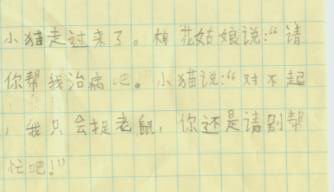 小猫走过来了。棉花姑娘说：“请
你帮我治病吧。小猫说：“对不起
，我只会捉老鼠，你还是请别帮
忙吧！”